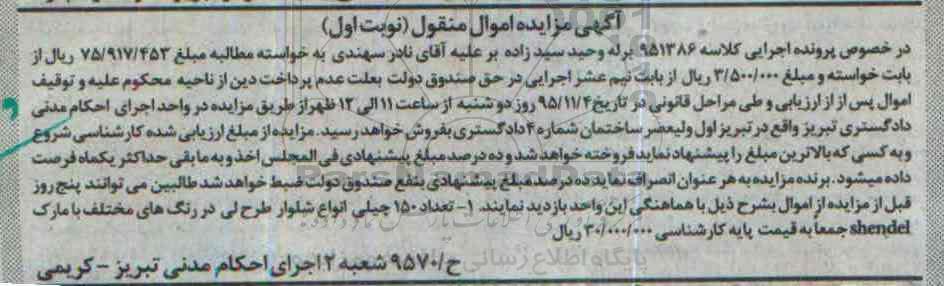 آگهی مزایده اموال منقول (نوبت اول)
در خصوص پرونده اجرایی کلاسه ۹۵۱۳۸۶ برله وحید سید زاده بر علیه آقای نادر سهندی به خواسته مطالبه مبلغ ۷۵/۹۱۷/۴۵۳ ریال از
بابت خواسته و مبلغ ۳/۵۰۰/۰۰۰ ریال از بابت نیم عشر اجرایی در حق صندوق دولت بعلت عدم پرداخت دین از ناحیه محکوم علیه و توقیف
اموال پس از از ارزیابی و طی مراحل قانونی در تاریخ ۹۵/۱۱/۴ روز دو شنبه از ساعت ۱۱ الی ۱۲ ظهر از طریق مزایده در واحد اجرای احکام مدنی
دادگستری تبریز واقع در تبریز اول ولیعصر ساختمان شماره ۴ دادگستری بفروش خواهد رسید. مزایده از مبلغ ارزیابی شده کارشناسی شروع
و به کسی که بالاترین مبلغ را پیشنهاد نماید فروخته خواهد شد و ده درصد مبلغ پیشنهادی فی المجلس اخذ و به ما بقی حداکثر یکماه فرصت
داده میشود. برنده مزایده به هر عنوان انصراف نماید ده درصد مبلغ پیشنهادی بنفع صندوق دولت ضبط خواهد شد طالبین می توانند پنج روز
قبل از مزایده از اموال بشرح ذیل با هماهنگی این واحد بازدید نمایند. ۱- تعداد ۱۵۰ چیلی انواع شلوار طرح لی در رنگ های مختلف با مارک
shendel جمعاً به قیمت پایه کارشناسی ۳۰/۰۰۰/۰۰۰ ریال
ح/۹۵۷۰ شعبه ۲ اجرای احکام مدنی تبریز - کریمی
ParsNamadData
پایگاه اطلاع رسانی